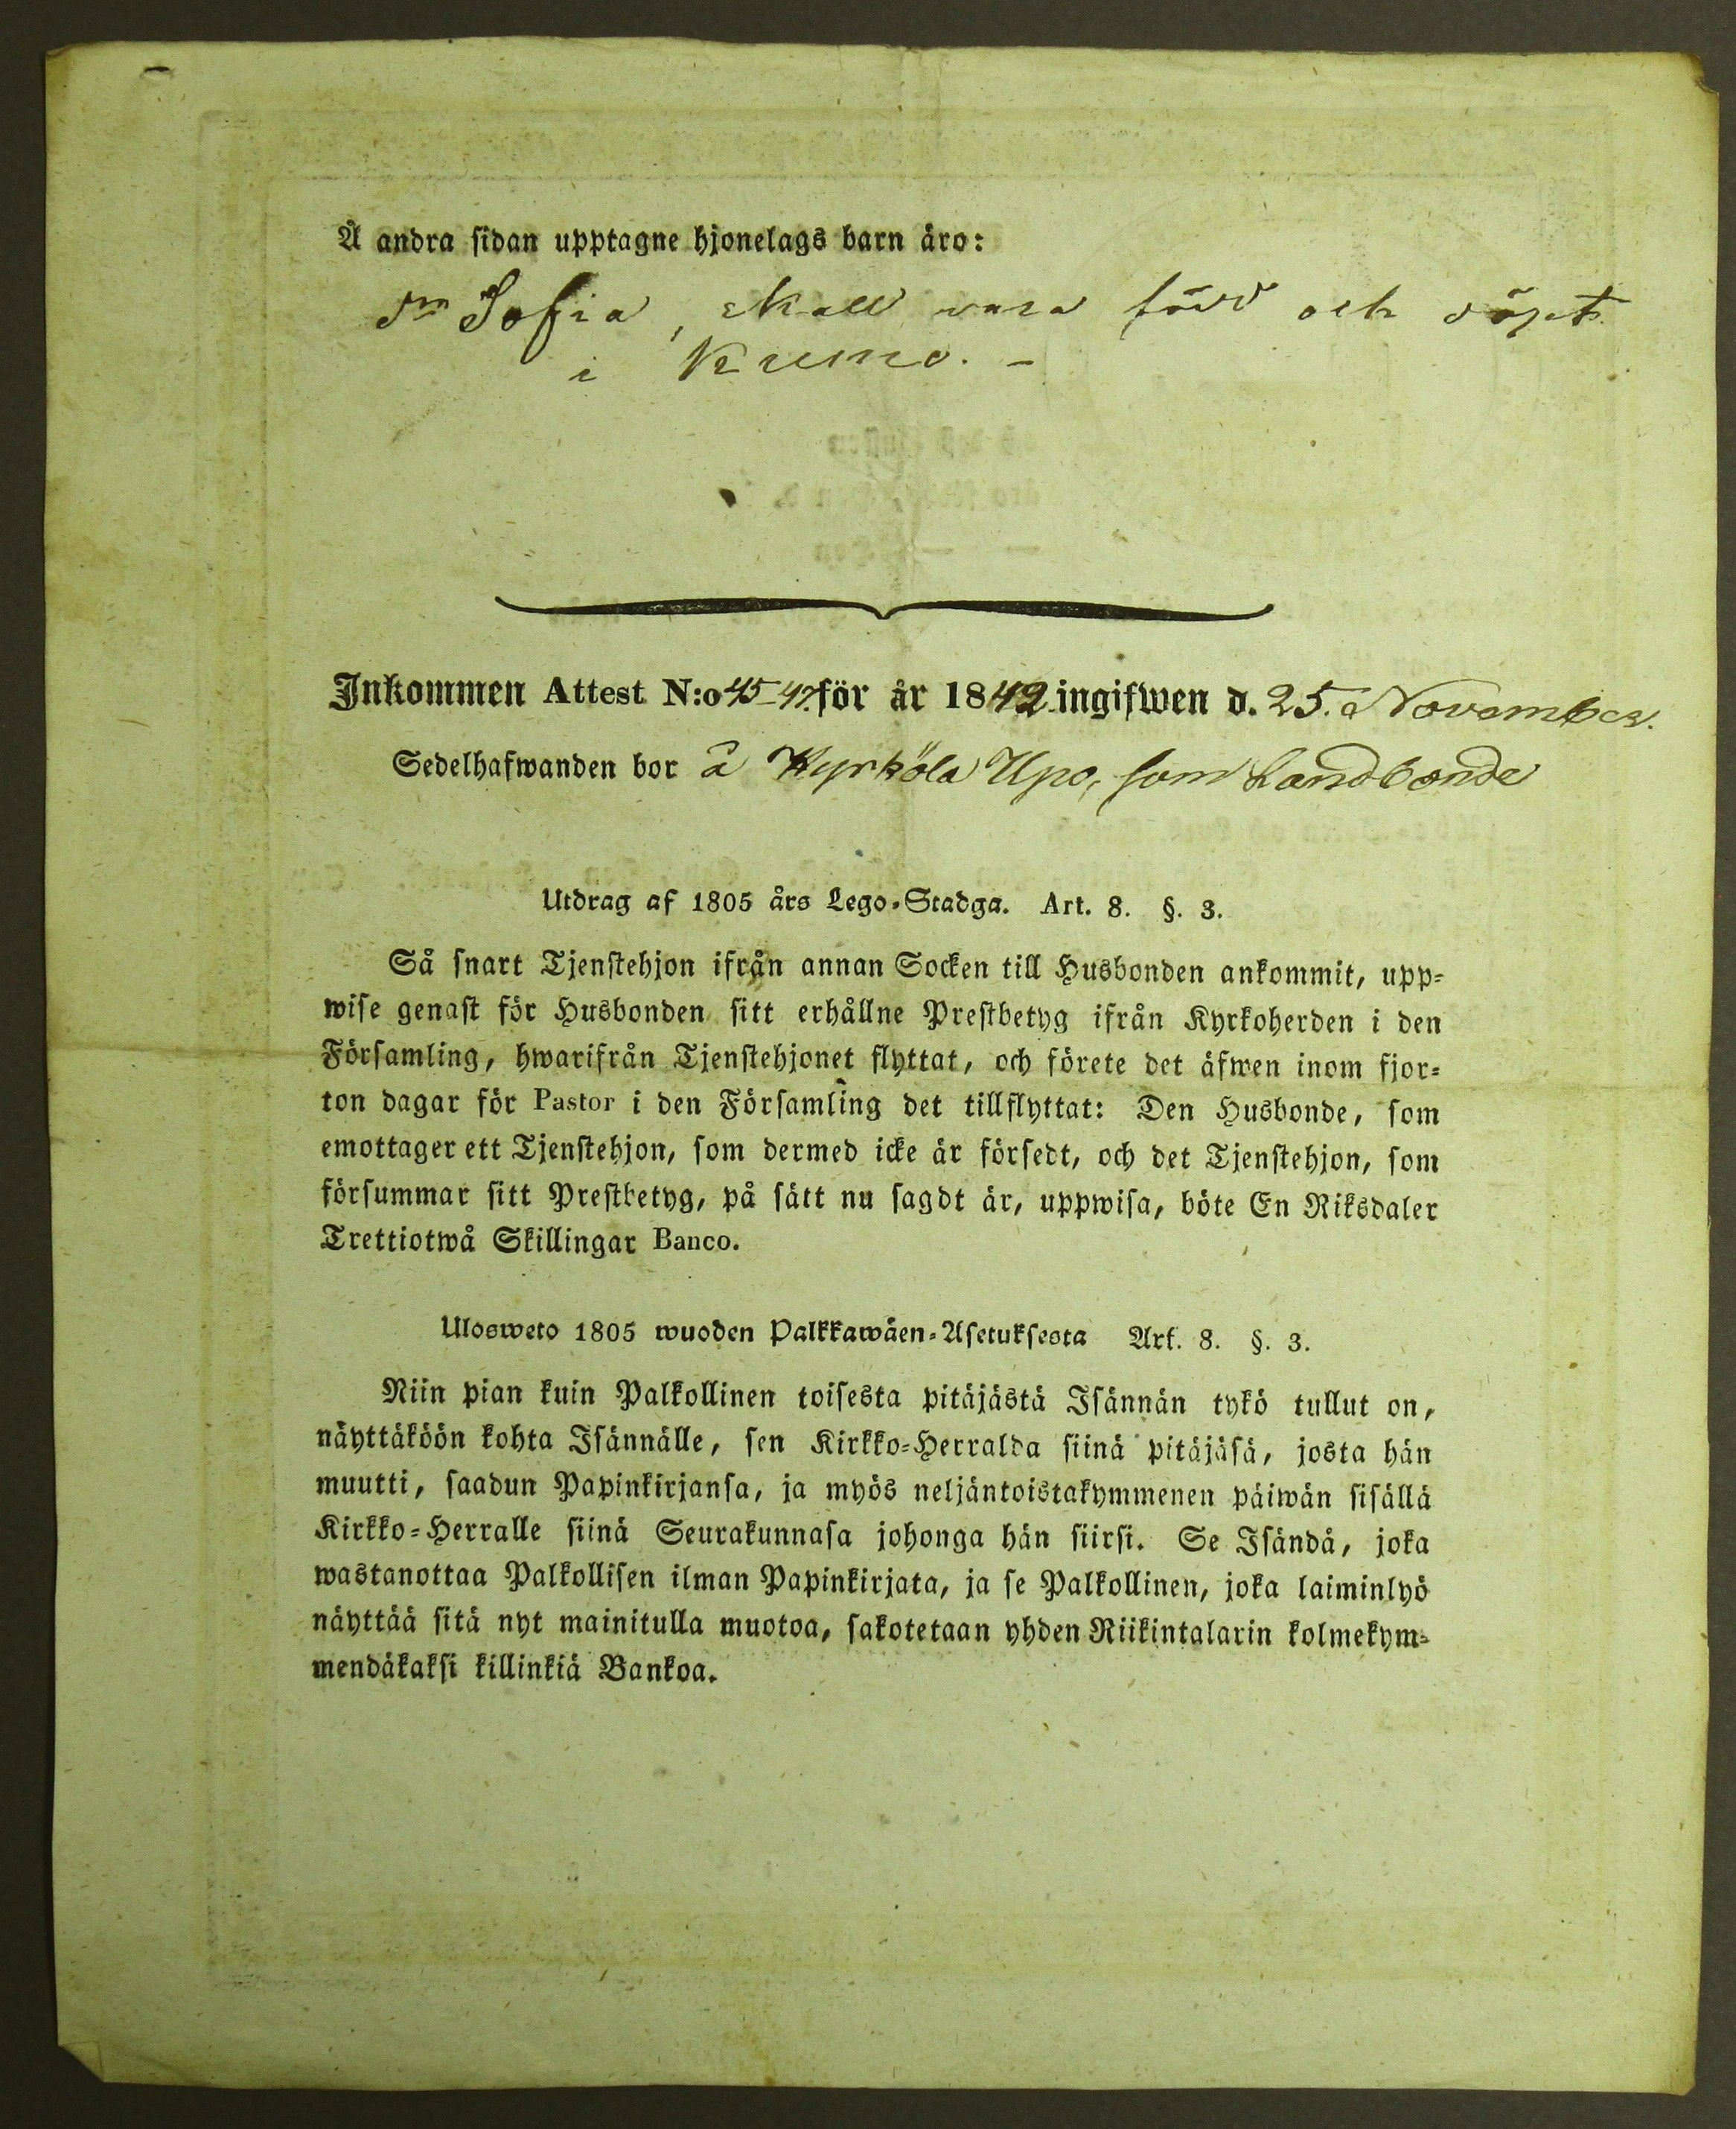 Å andra sidan upptagne hjonelags barn äro:
Dr Sofia, skall vara född och döpt
i Kumo. –
Inkommen Attest N:o 45-47. för år 1842 ingifwen d. 25. November.
Sedelhafwanden bor å Kyrköla Ypo, som Landbonde
Utdrag af 1805 års Lego-Stadga. Art. 8. §. 3.
Så snart Tjenstehjon ifrån annan Socken till Husbonden ankommit, upp-
wise genast för Husbonden sitt erhållne Prestbetyg ifrån Kyrkoherden i den
Församling, hwarifrån Tjenstehjonet flyttat, och förete det äfwen inom fjor-
ton dagar för Pastor i den Församling det tillflyttat: Den Husbonde, som
emottager ett Tjenstehjon, som dermed icke är försedt, och det Tjenstehjon, som
försummar sitt Prestbetyg, på sätt nu sagdt är, uppwisa, böte En Riksdaler
Trettiotwå Skillingar Banco.
Ulosweto 1805 wuoden Palkkawäen-Asetuksesta Art. 8. §. 3.
Niin pian kuin Palkollinen toisesta pitäjästä Isännän tykö tullut on,
näyttäköön kohta Isännälle, sen Kirkko-Herralda siinä pitäjäsä, josta hän
muutti, saadun Papinkirjansa, ja myös neljäntoistakymmenen päiwän sisällä
Kirkko-Herralle siinä Seurakunnasa johonga hän siirsi. Se Isändä, joka
wastanottaa Palkollisen ilman Papinkirjata, ja se Palkollinen, joka laiminlyö
näyttää sitä nyt mainitulla muotoa, sakotetaan yhden Riikintalarin kolmekym-
mendäkaksi killinkiä Bankoa.